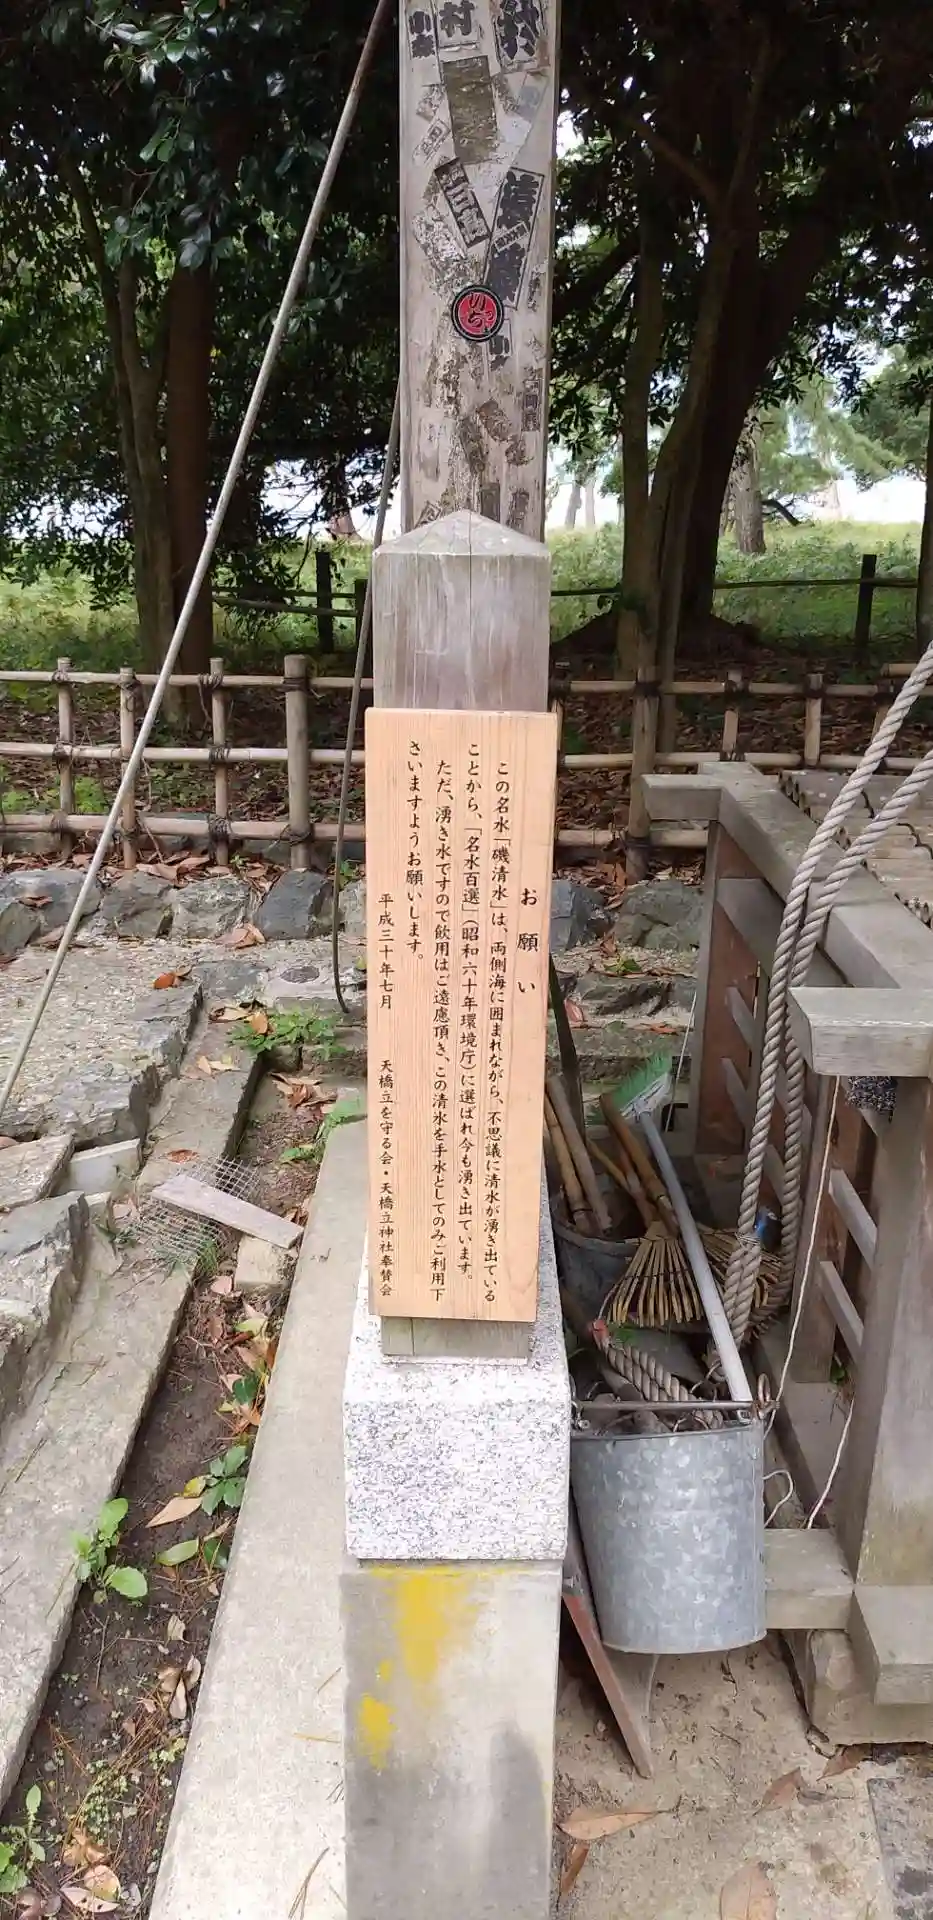 村
お願い
この名水「磯清水」は、両側海に囲まれながら、不思議に清水が湧き出ている
ことから、「名水百選」(昭和六十年環境庁)に選ばれ今も湧き出ています。
ただ、湧き水ですので飲用はご遠慮頂き、この清水を手水としてのみご利用下
さいますようお願いします。
平成三十年七月 天橋立を守る会・天橋立神社奉賛会